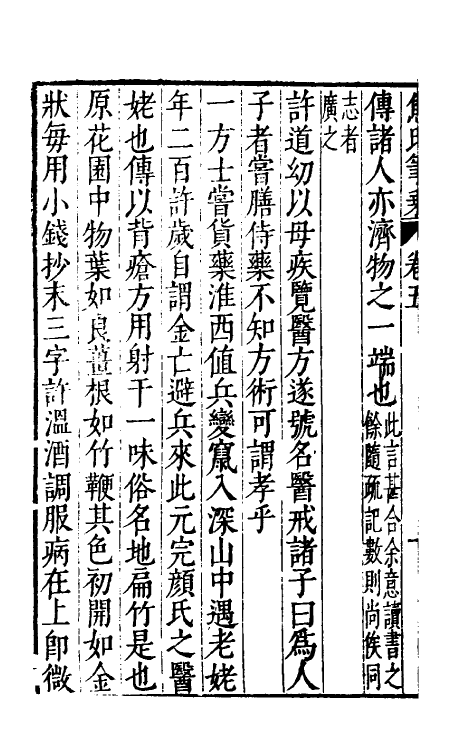 焦氏筆乘 卷五
傳諸人亦濟物之一端也此言甚合余意讀書之餘隨疏記數則尚俟同
志者廣之
許道幼以母疾覽醫方遂號名醫戒諸子曰為人
子者嘗膳侍藥不知方術可謂孝乎
一方士嘗貨藥淮西值兵變竄入深山中遇老姥
年二百許歲自謂金亡避兵來此元完顏氏之醫
姥也傳以背瘡方用射干一味俗名地扁竹是也
原花園中物葉如良薑根如竹鞭其色初開如金
狀每用小錢抄末三字許溫酒調服病在上卽微